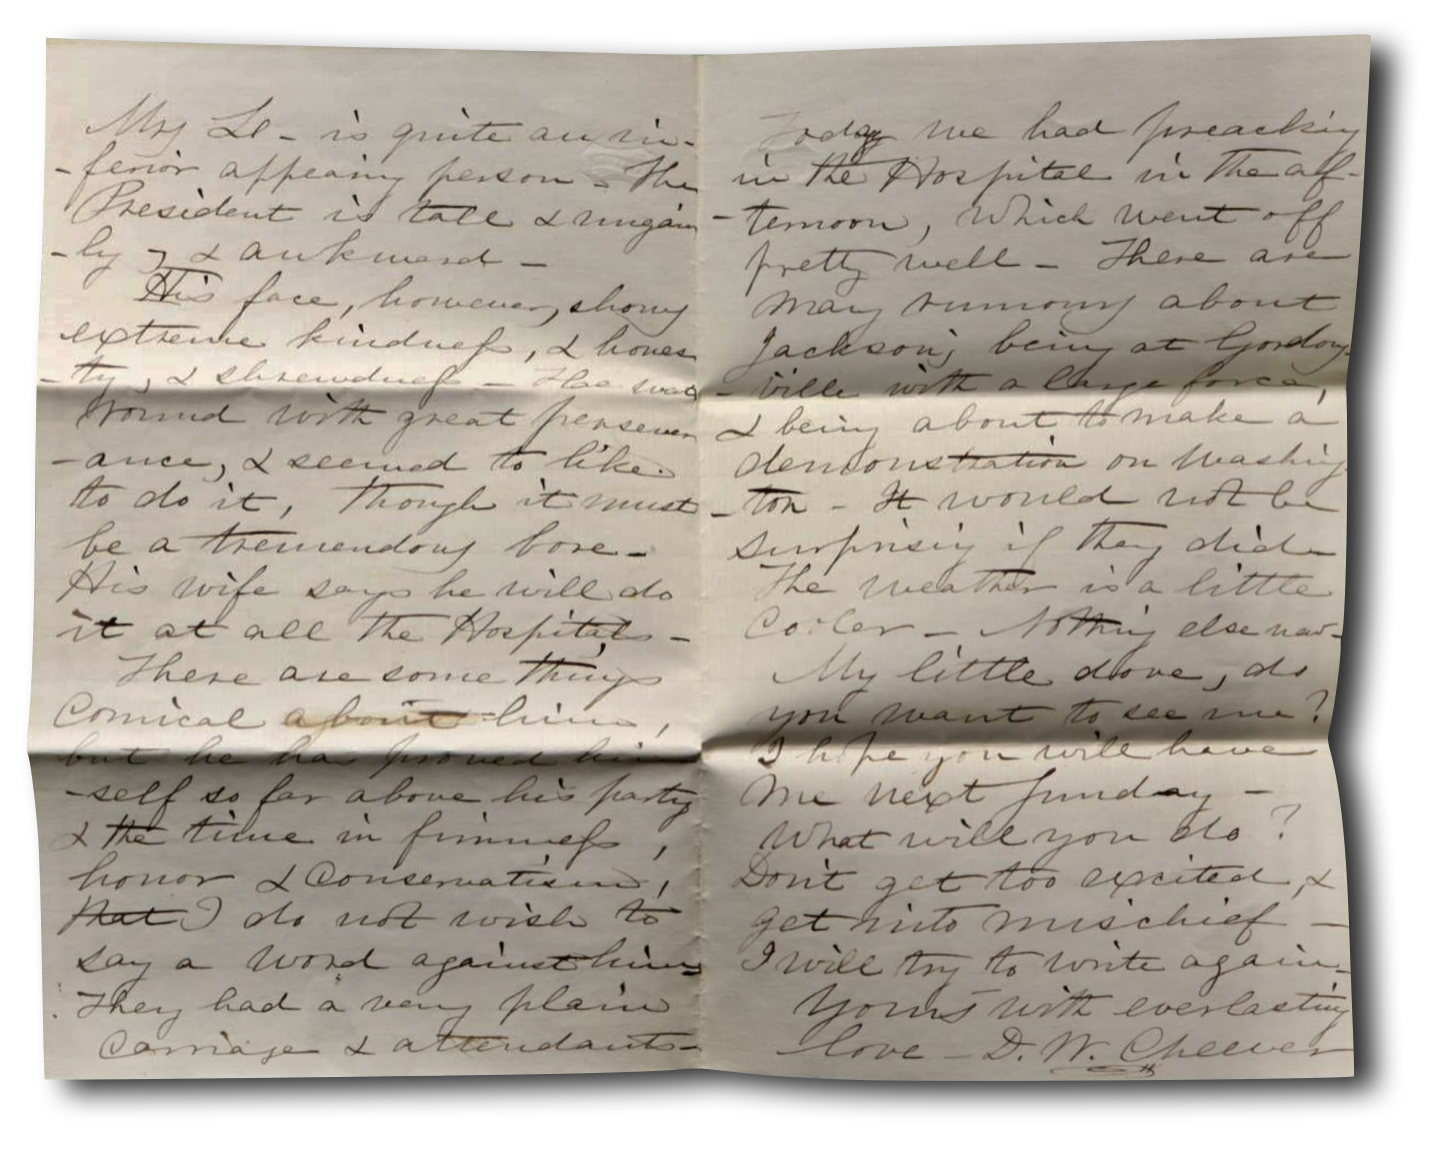 Mrs Lo - is quite an in-
-ferior appearing person - The
President is tall & ungain
-ly, & awkward -
His face, however, shows
extreme kindness, & hones
-ty, & shrewdness - He went
round with great persever
-ance, & seemed to like
to do it, though it must
be a tremendous bore -
His wife says he will do
it at all the Hospitals -
There are some things
comical about him,
but he has proved him
-self so far above his party
& the time in firmness,
honor & conservatism,
that I do not wish to
say a word against him -
They had a very plain
carriage & attendants -
Today we had preaching
in the Hospital in the af-
-ternoon, which went off
pretty well - There are
many rumours about
Jackson's being at Gordons-
-ville with a large force,
& being about to make a
demonstration on Washing
-ton - It would not be
surprising if they did -
The weather is a little
cooler - Nothing else new -
My little dove, do
you want to see me?
I hope you will have
me next Sunday -
What will you do?
Don't get too excited, &
get into mischief -
I will try to write again -
Yours with everlasting
love - D. W. Cheever